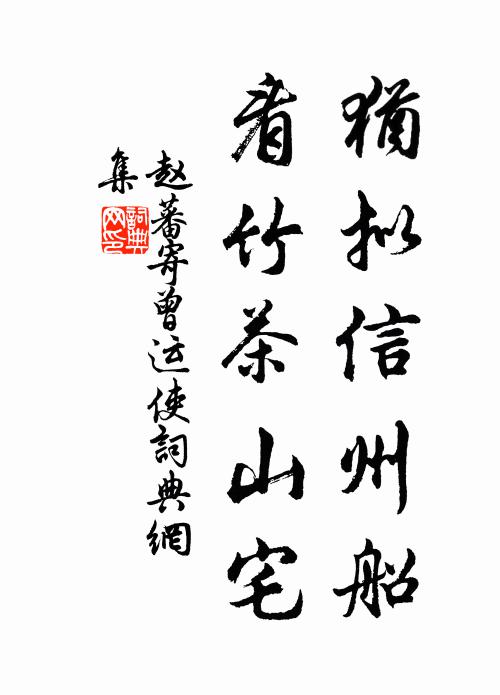 猶拟信州船
看竹茶山宅
赵蕃寄曾运使詞典網
集
詞典网印